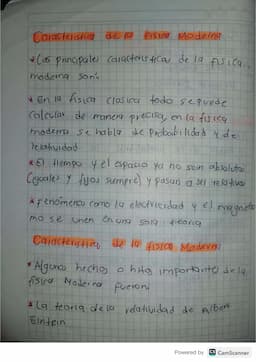 Caracteristica de la fisica Moderna
* Las principales caracteristicas de la fisica
moderna son:
* En la fisica clasica todo se puede
calcular de manera precisa, en la fisica
moderna se habla de probabilidad y de
relatividad
* El tiempo y el espacio ya no son absolutos
(iguales y fijos siempre) y pasan a ser relativos
* fenómenos como la electricidad y el magnetis
mo se unen en una sola teoria
Caracteristica de la fisica Moderna
* Algunos hechos o hitos importantes de la
fisica Moderna fueron:
* La teoria de la relatividad de Albert
Einstein
Powered by CS CamScanner